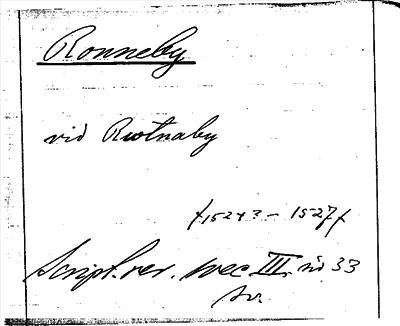 Ronneby
vid Rwtnaby
(1524? - 1527)
Script. rer. svec. III. nr 33